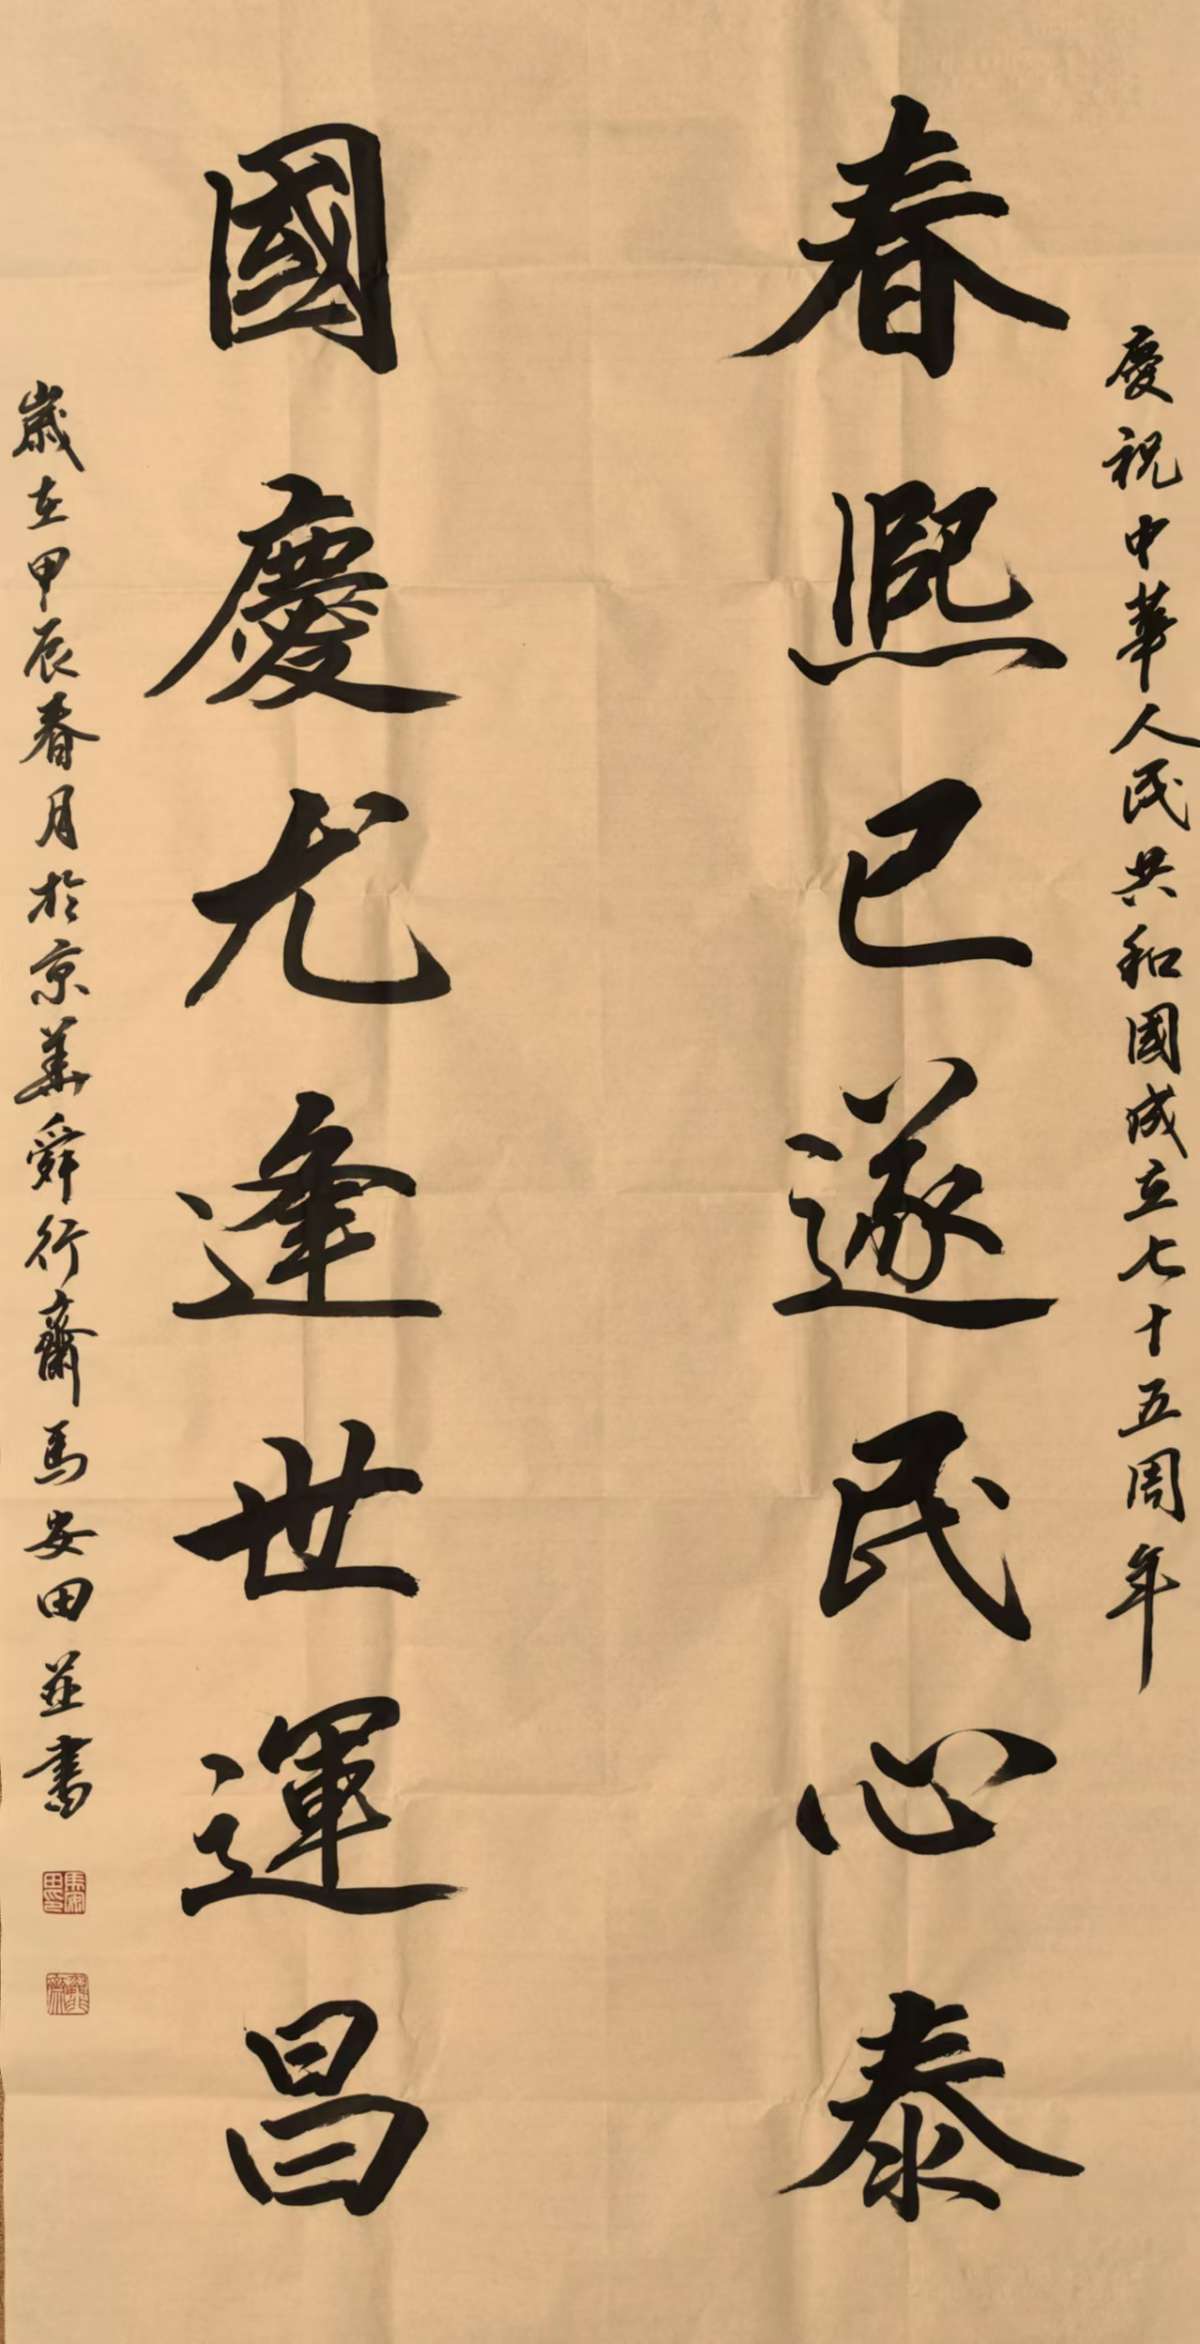 慶祝中華人民共和國成立七十五周年
春熙已遂民心泰
國慶尤逢世運昌
歲在甲辰春月於京華舜行齋馬安田並書